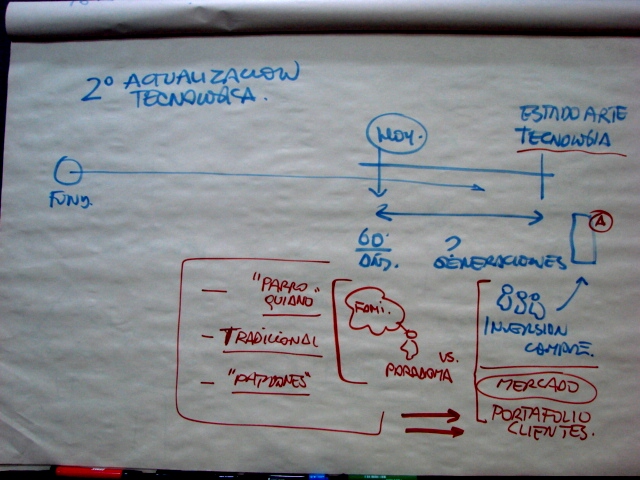 2º ACTUALIZACION
TECNOLOGICA.
HOY.
ESTADO ARTE
TECNOLOGIA
FUND.
60
AÑOS.
?
GENERACIONES
A
"PARRO
QUIANO"
TRADICIONAL
"PATRONES"
FAMI.
VS.
PARADIGMA
INVERSION
MERCADO
PORTAFOLIO
CLIENTES.